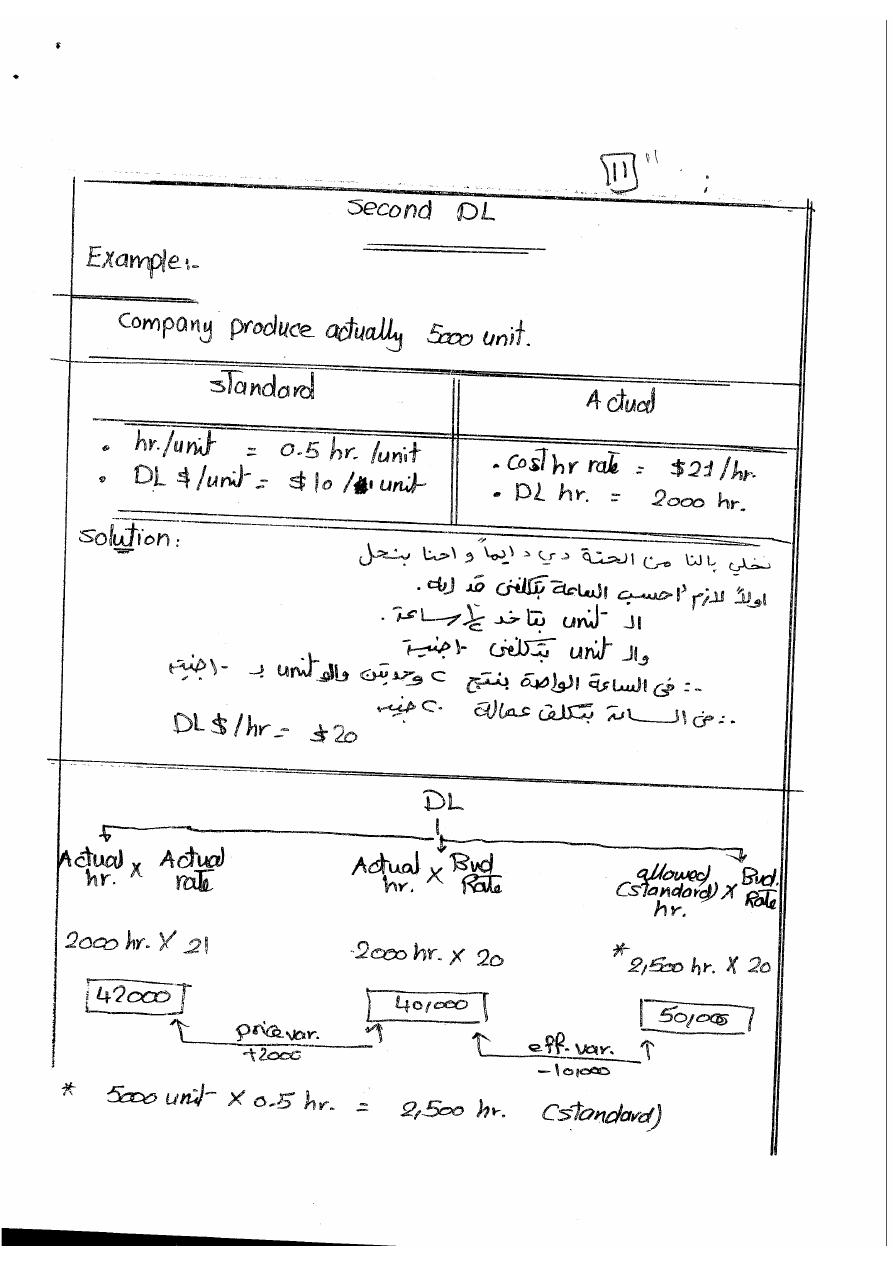 11 "
Second DL
Example:-
Company produce actually 5000 unit.
Standard
Actual
• hr./unit = 0.5 hr. /unit
• DL $/unit = $10 / unit
• Cost hr rate = $21/hr.
• DL hr. = 2000 hr.
Solution:
نخلي بالنا من الحتة دي دايماً واحنا بنحل
اولاً لازم احسب الساعة بتكلفنى قد ايه.
الـ unit بتاخد ½ ساعة.
والـ unit بتكلفنى ١٠ جنية
∴ فى الساعة الواحدة بنتج ٢ وحدتين والـ unit بـ ١٠ جنيه
∴ فى الساعة بتكلف عمالة ٢٠ جنيه
DL $/hr = $20
DL
Actual hr. X Actual rate
Actual hr. X Bud Rate
allowed (standard) hr. X Bud. Rate
2000 hr. X 21
2000 hr. X 20
* 2,500 hr. X 20
42000
40,000
50,000
price var.
+2000
eff. var.
-10,000
* 5000 unit X 0.5 hr. = 2,500 hr. (standard)